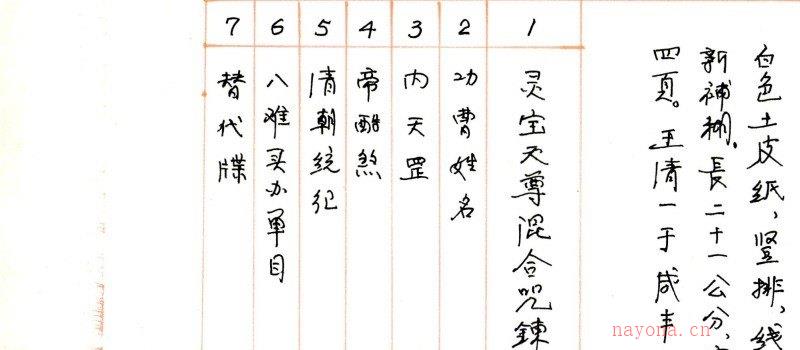 白色土皮纸，竖排，线
新補糊。長二十一公分，
四頁。王清一于咸丰
1 灵宝天尊混合咒鍊
2 功曹姓名
3 内天罡
4 帝酷煞
5 清朝統纪
6 八难买办單目
7 替代牒
nayona.cn